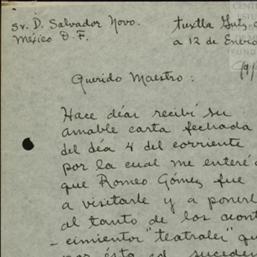 Sr. D. Salvador Novo.
México D. F.
Tuxtla Gut,
a 12 de Enero
19/
Querido Maestro:
Hace días recibí su
amable carta fechada
del día 4 del corriente
por la cual me enteré
que Romeo Gómez, fue
a visitarle y a ponerl
al tanto de los acont
-cimientos "teatrales" qu
por ésta